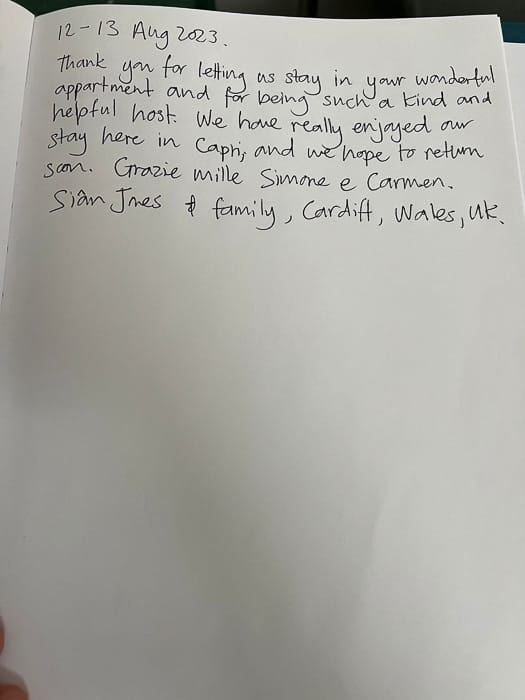 12-13 Aug 2023.
Thank you for letting us stay in your wonderful
appartment and for being such a kind and
helpful host. We have really enjoyed our
stay here in Capri, and we hope to return
soon. Grazie mille Simone e Carmen.
Siân Jones & family, Cardiff, Wales, UK.